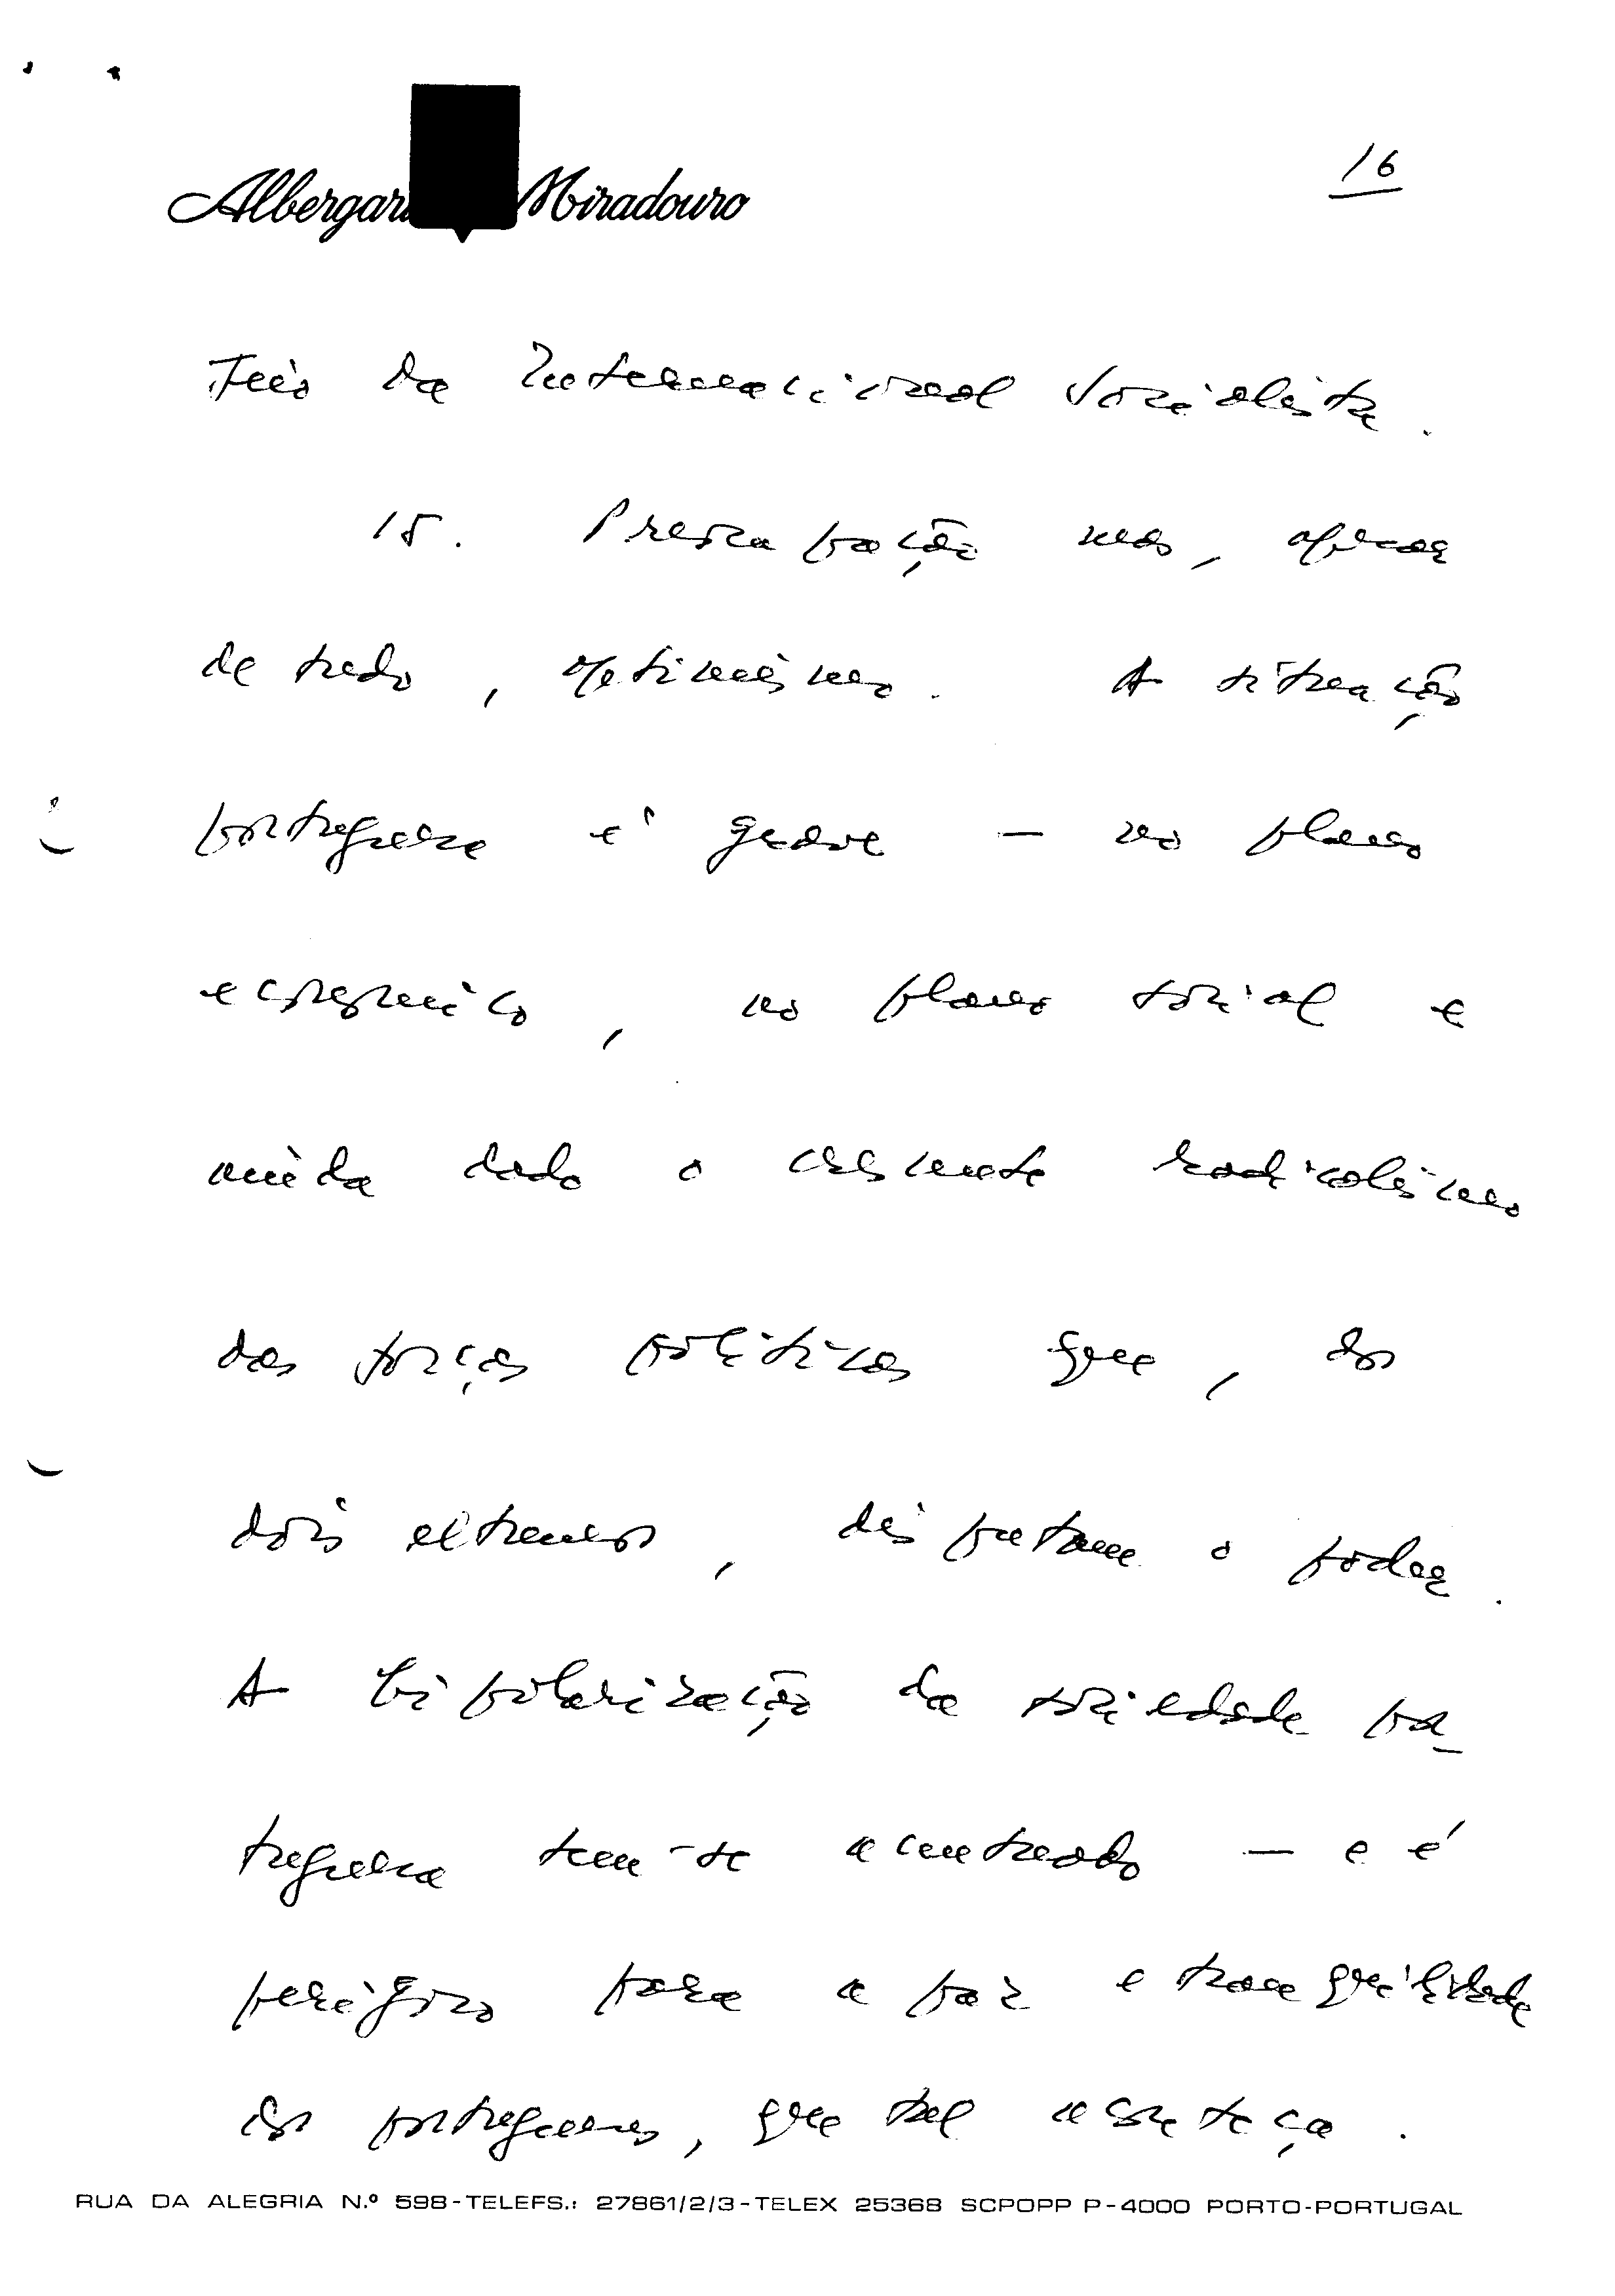 Albergar Miradouro
16
da Internacional Socialista.
15. Preocupação mas, apesar
de tudo, optimismo. A situação
portuguesa é grave — no plano
económico, no plano social e
ainda dado o crescente radicalismo
das forças políticas que, dos
dois extremos, disputam o poder.
A bipolarização da sociedade por-
tuguesa tem-se acentuado — e é
perigoso para a paz e tranquilidade
dos portugueses, que tal aconteça.
RUA DA ALEGRIA N.º 598-TELEFS.: 27861/2/3-TELEX 25368 SCPOPP P-4000 PORTO-PORTUGAL